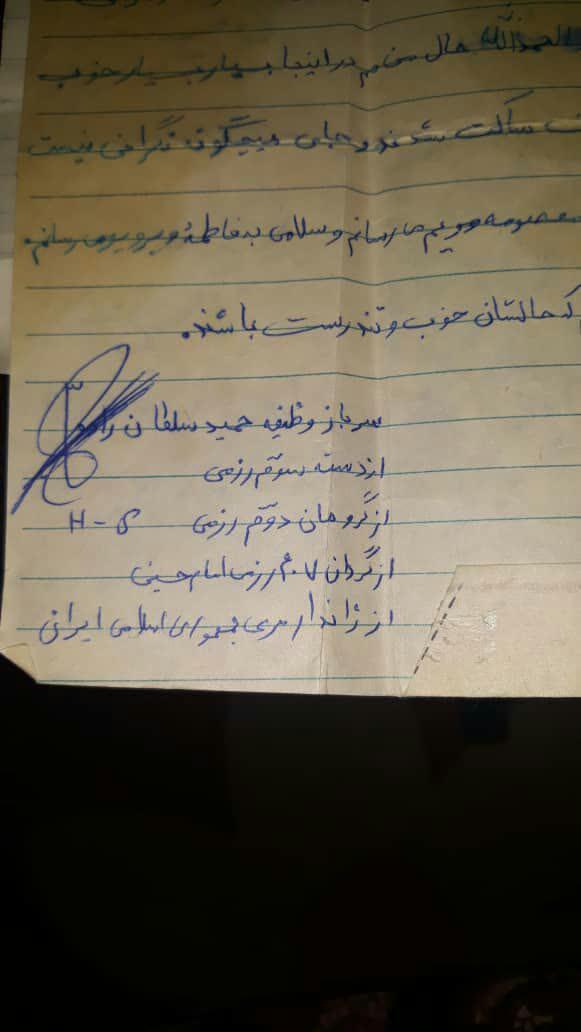 الحمدالله حال من هم در اینجا بسیار بسیار خوب
ساکت شدند و جای هیچگونه نگرانی نیست
معصومه و مریم می رسانم و سلامی به فاطمه و می رسانم.
که حالشان خوب و تندرست باشند.
سرباز وظیفه حمید سلطان
از دسته سوّم رزمی
از گروهان دوّم رزمی H - S
از گردان ۴۰۷ رزمی امام حسین
از ژاندارمری جمهوری اسلامی ایران